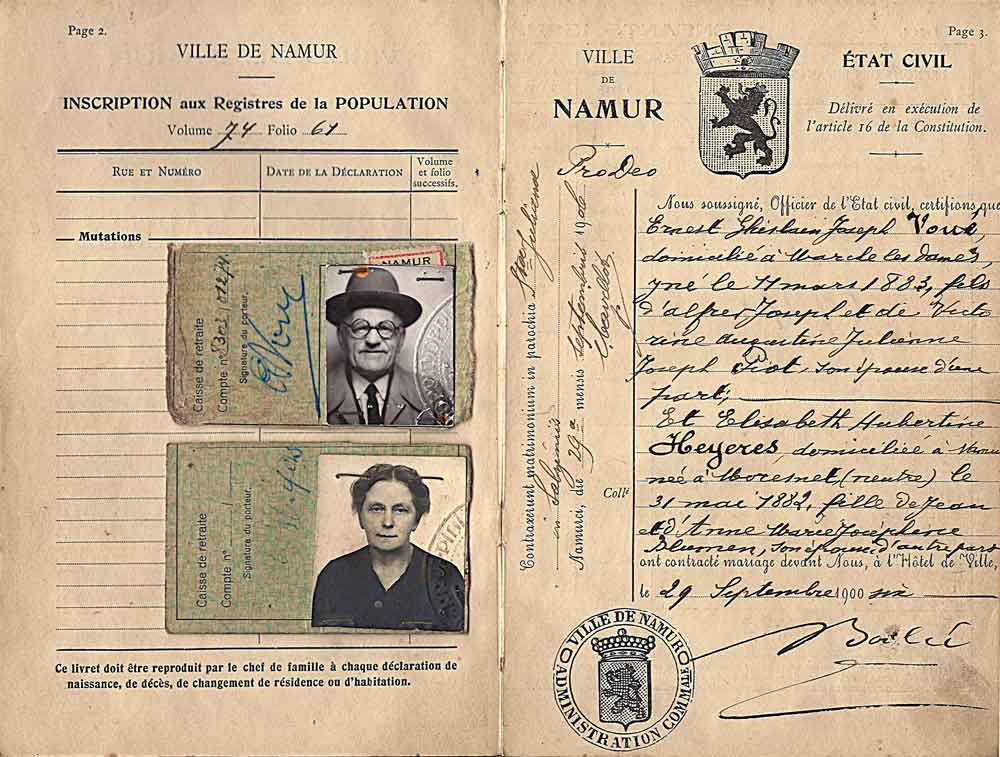 Page 2.
VILLE DE NAMUR
INSCRIPTION aux Registres de la POPULATION
Volume 74 Folio 61
RUE ET NUMÉRO
DATE DE LA DÉCLARATION
Volume et folio successifs.
Mutations
Caisse de retraite
Compte n°
Signature du porteur,
NAMUR
Caisse de retraite
Compte n°
Signature du porteur,
Ce livret doit être reproduit par le chef de famille à chaque déclaration de
naissance, de décès, de changement de résidence ou d'habitation.
Page 3.
VILLE
DE
NAMUR
ÉTAT CIVIL
Délivré en exécution de
l'article 16 de la Constitution.
Pro Deo
Contraxerunt matrimonium in parochia
Namurci, die 29a mensis septembris 1906
Collé
Nous soussigné, Officier de l'Etat civil, certifions que
Ernest Ghislain Joseph Voué,
domicilié à Marche les dames,
y né le 11 mars 1883, fils
d'Alfred Joseph et de Victo
rine Augustine Julienne
Joseph Piot, son épouse d'une
part,
Et Elisabeth Hubertine
Heyeres, domiciliée à Namur
née à Moresnet (neutre) le
31 mai 1882, fille de Jean
et d'Anne Marie Joséphine
Blumen, son épouse d'autre part
ont contracté mariage devant Nous, à l'Hôtel de Ville,
le 29 Septembre 1900 six
VILLE DE NAMUR
ADMINISTRATION COMMALE